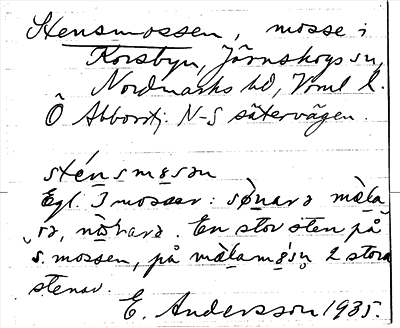 Stensmossen, mosse i
Korsbyn, Järnskogs sn,
Nordmarks hd, Vrml l.
Ö Abborrtj. N-S sätervägen.
sténsmɵsən
Egl. 3 mosser: sønarə mɷla
rə, nɷrarə. En stor sten på
s. mossen, på mɷlam 2 stora
stenar.
E. Andersson 1935.